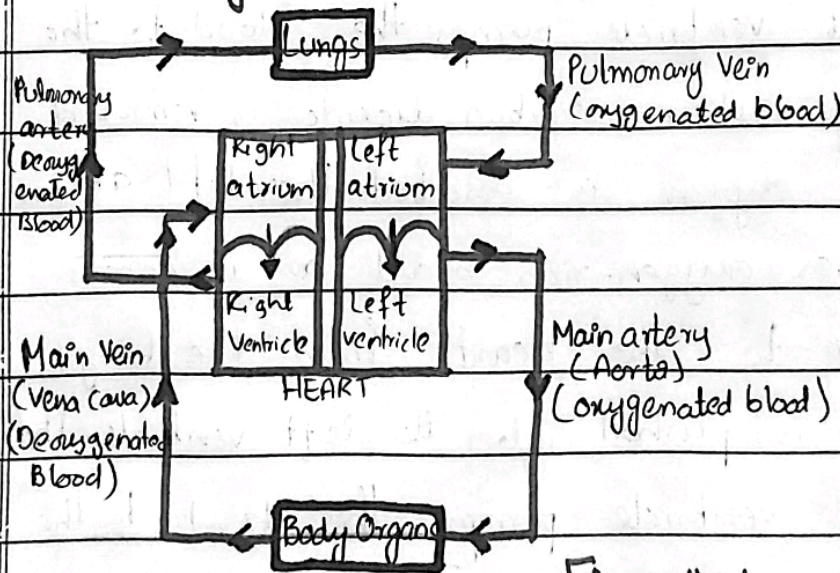 Lungs
Pulmonary Vein
(oxygenated blood)
Pulmonary
artery
(Deoxyg
enated
Blood)
Right
atrium
Left
atrium
Right
Ventricle
Left
ventricle
HEART
Main Vein
(Vena Cava)
(Deoxygenated
Blood)
Main artery
(Aorta)
(oxygenated blood)
Body Organs